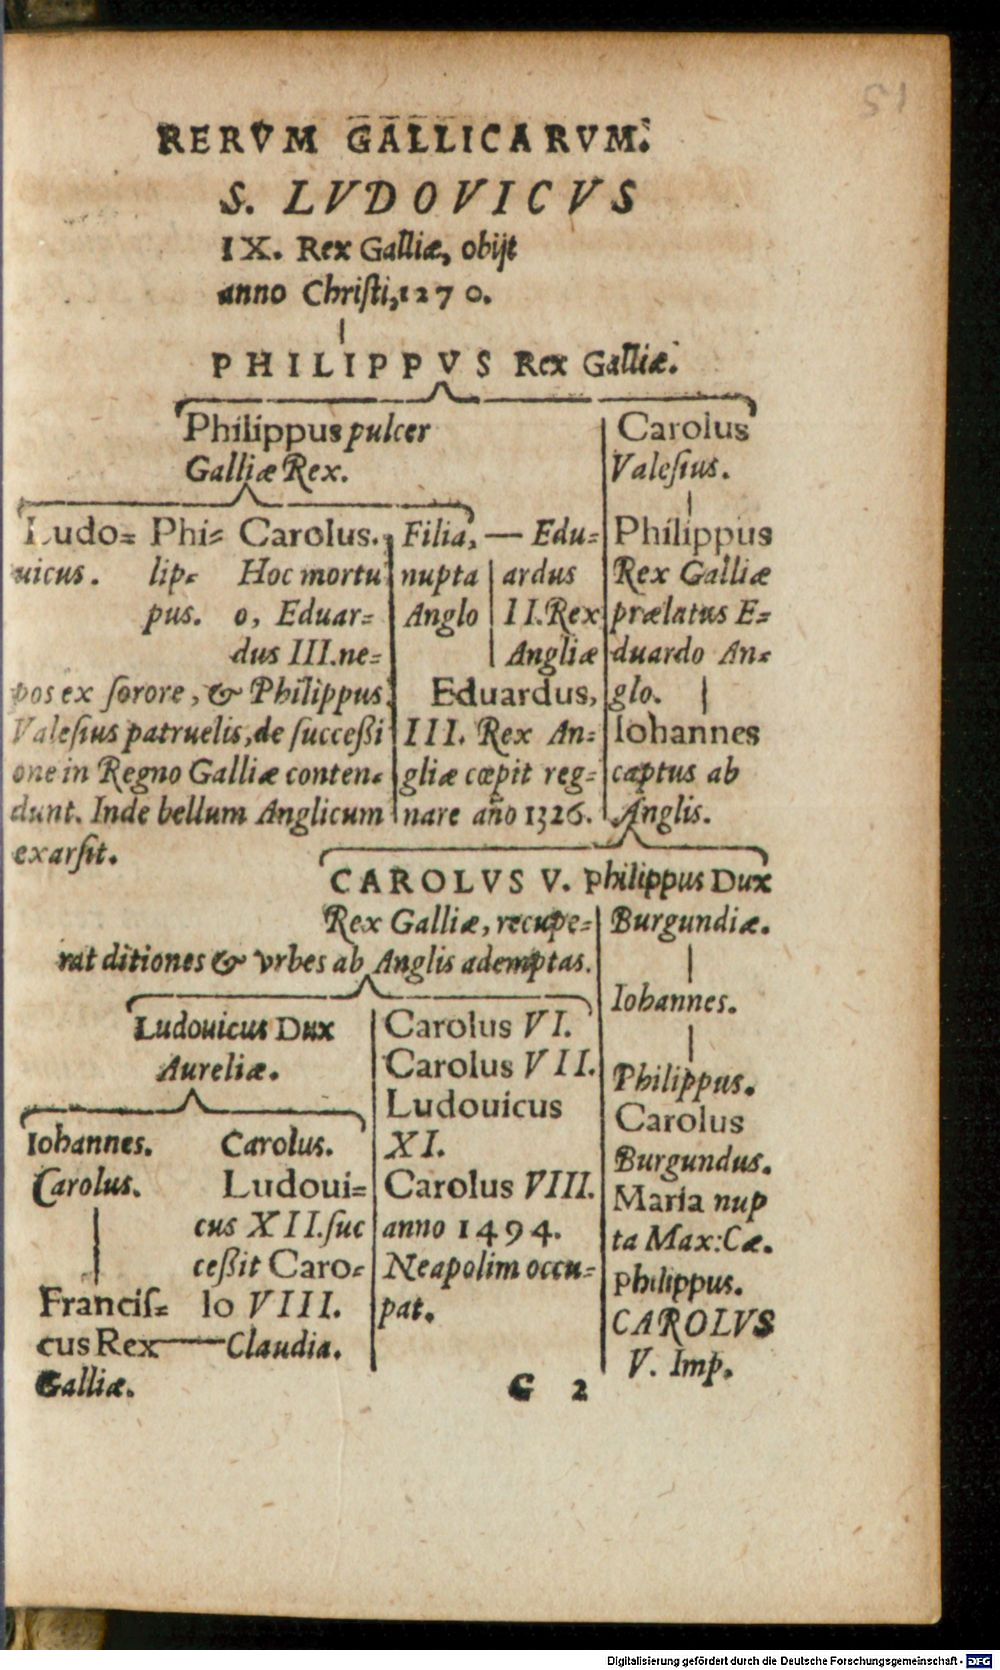 51
RERVM GALLICARVM.
S. LVDOVICVS
IX. Rex Galliæ, obijt
anno Chriſti, 1270.
PHILIPPVS Rex Galliæ.
Philippus pulcer
Galliæ Rex.
Carolus
Valeſius.
Ludo=
uicus.
Phi=
lip=
pus.
Carolus.
Hoc mortu
o, Eduar=
dus III. ne=
pos ex ſorore, & Philippus
Valeſius patruelis, de ſucceßi
one in Regno Galliæ conten=
dunt. Inde bellum Anglicum
exarſit.
Filia, — Edu=
nupta
Anglo
ardus
II. Rex
Angliæ
Eduardus,
III. Rex An=
gliæ cœpit reg=
nare año 1326.
Philippus
Rex Galliæ
prælatus E=
duardo An=
glo.
Iohannes
captus ab
Anglis.
CAROLVS V.
Rex Galliæ, recupe=
rat ditiones & vrbes ab Anglis ademptas.
Philippus Dux
Burgundiæ.
Iohannes.
Philippus.
Carolus
Burgundus.
Maria nup
ta Max: Cæ.
Philippus.
CAROLVS
V. Imp.
Ludouicus Dux
Aureliæ.
Carolus VI.
Carolus VII.
Ludouicus
XI.
Carolus VIII.
anno 1494.
Neapolim occu=
pat.
Iohannes.
Carolus.
Franciſ=
cus Rex
Galliæ.
Carolus.
Ludoui=
cus XII. ſuc
ceßit Caro=
lo VIII.
Claudia.
G 2
Digitalisierung gefördert durch die Deutsche Forschungsgemeinschaft - DFG